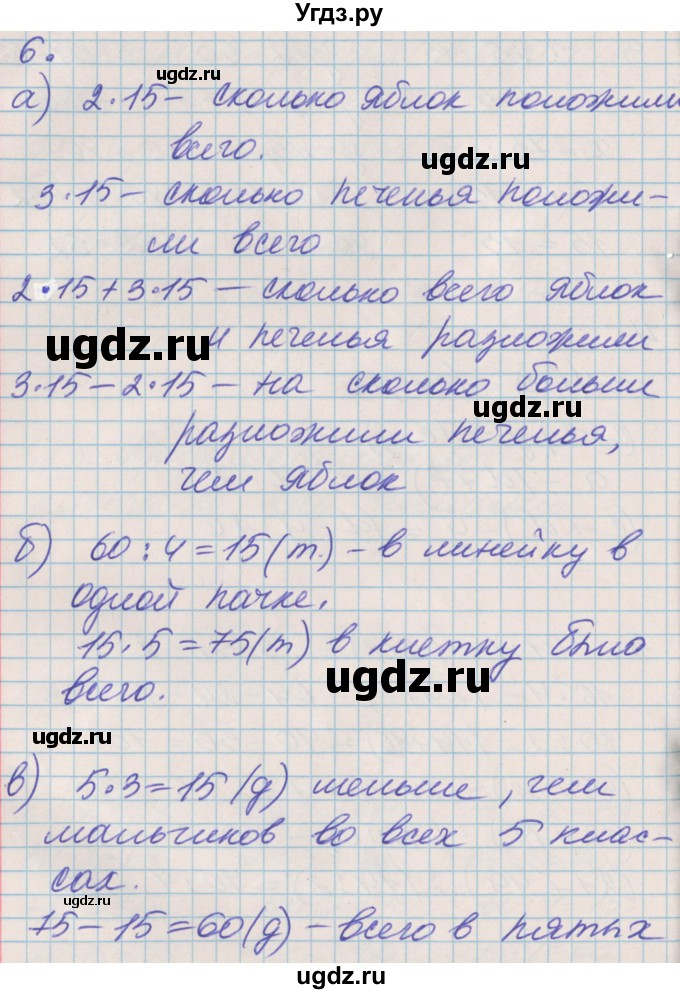 Угдз.ру
6.
ugdz.ru
а) 2·15 – сколько яблок положили
всего.
ugdz.ru
3·15 – сколько печенья положи-
ли всего
2·15+3·15 – сколько всего яблок
ugdz.ru и печенья разложили
3·15 – 2·15 – на сколько больше
ugdz.ru
разложили печенья,
чем яблок
ugdz.ru
б) 60:4=15(т.) – в линейку в
одной пачке.
15·5=75(т) в клетку было
всего. ugdz.ru
ugdz.ru
в) 5·3=15(д) меньше, чем
мальчиков во всех 5 клас-
сах.
ugdz.ru
75–15=60(д) – всего в пятых
ugdz.ru